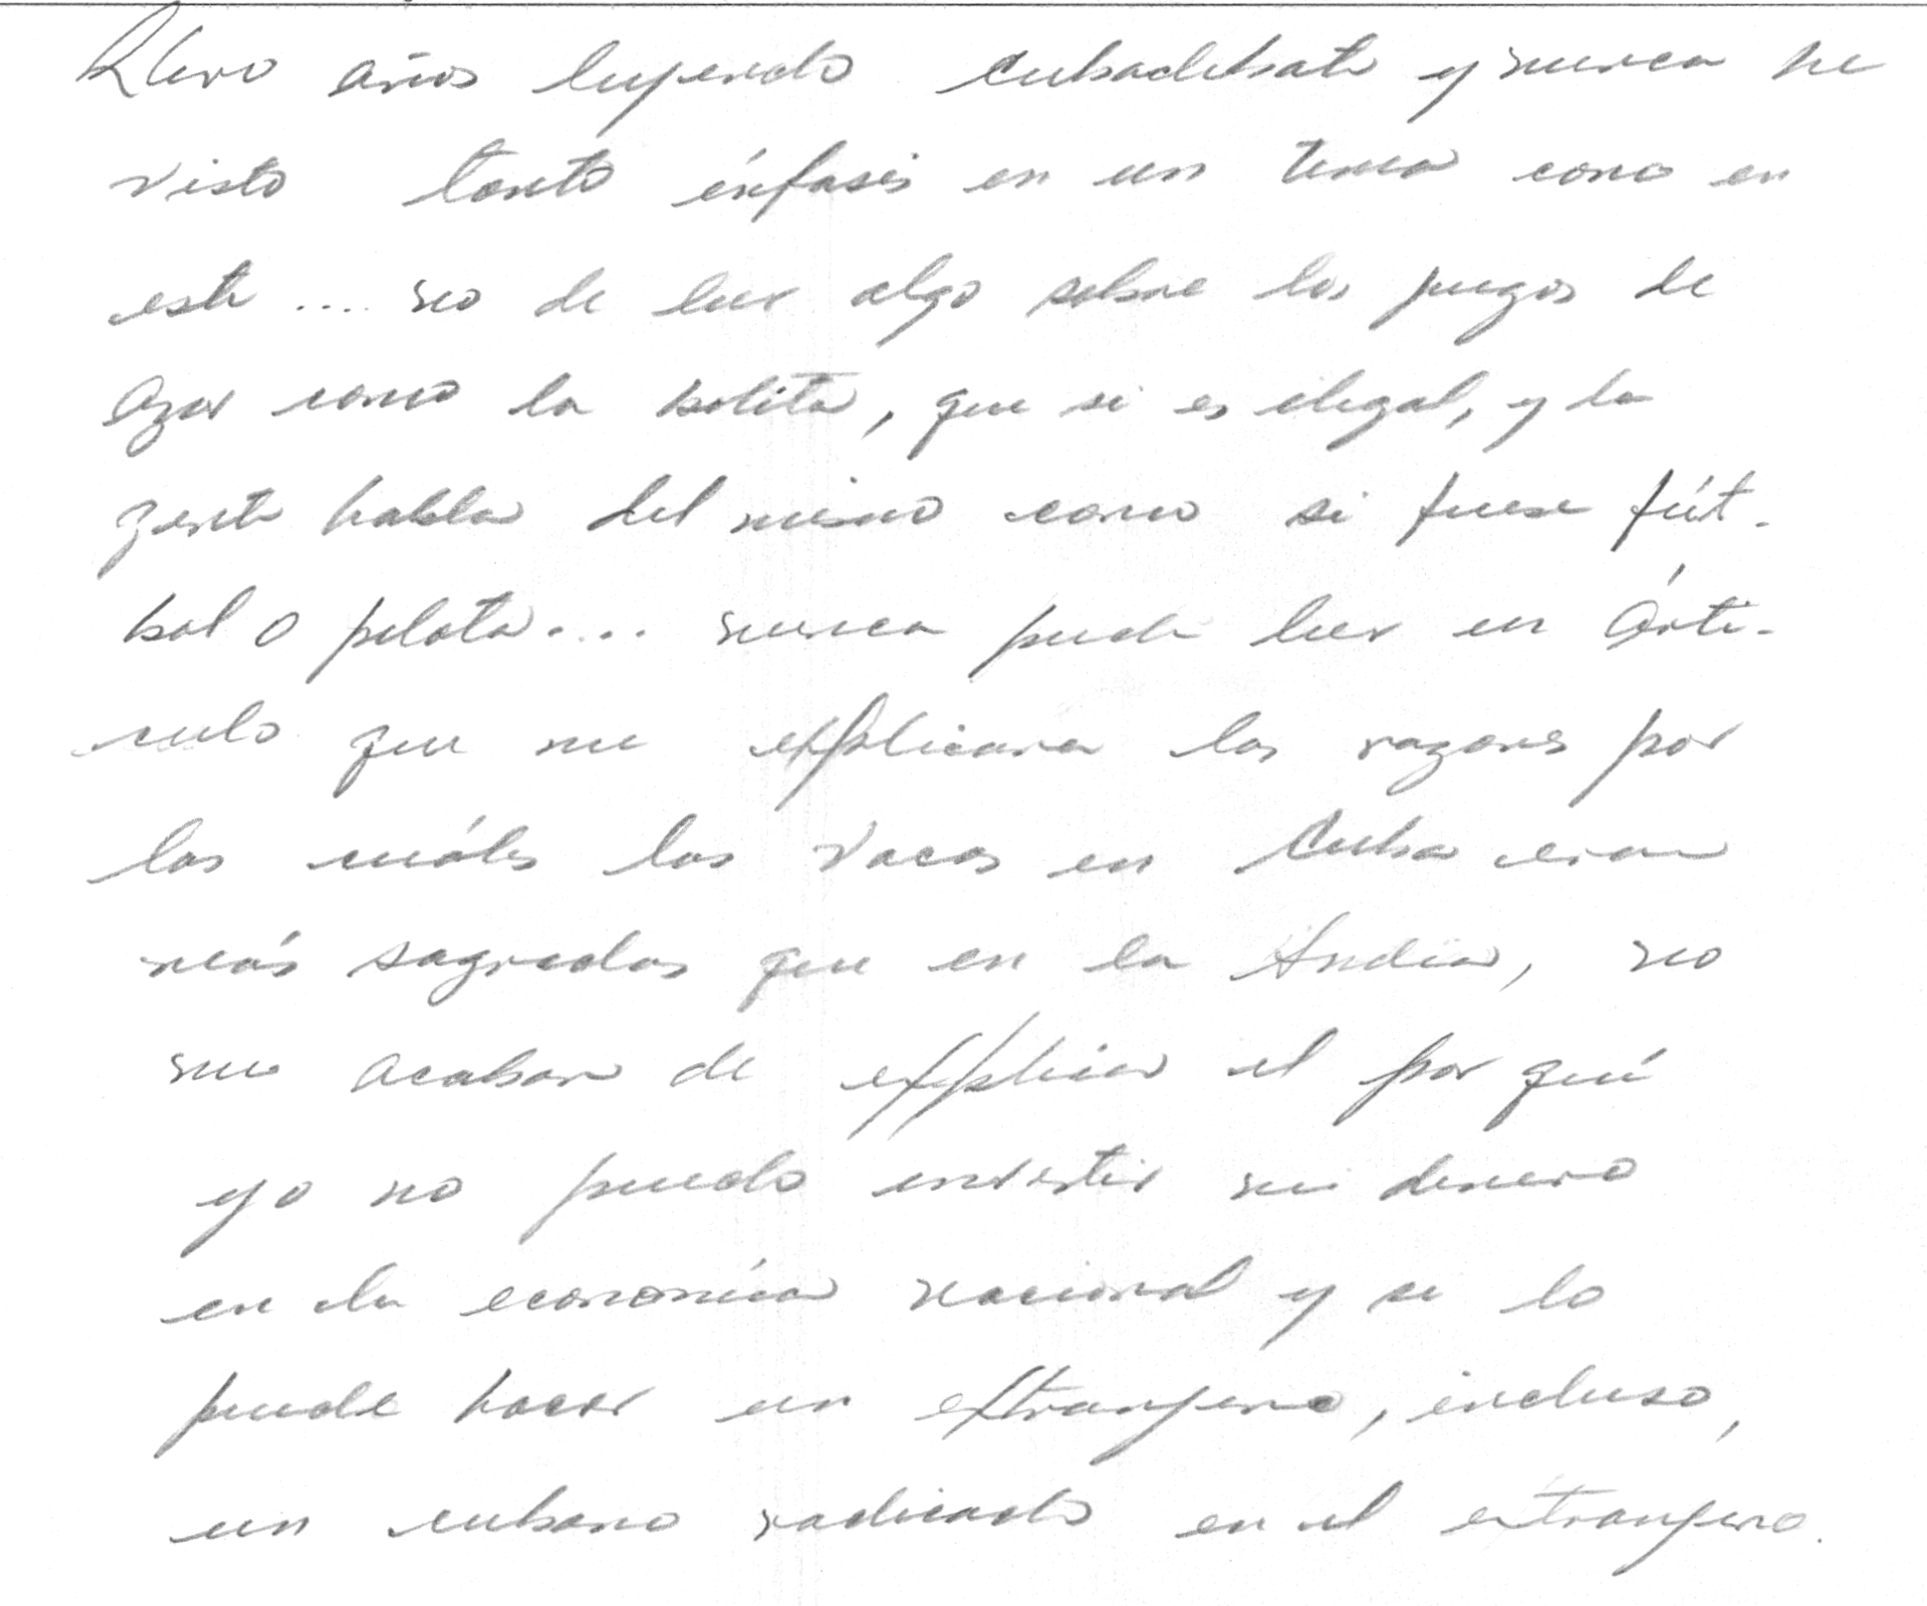 Llevo años leyendo cubadebate y nunca he
visto tanto énfasis en un tema como en
este .... no de leer algo sobre los juegos de
azar como la bolita, que si es ilegal, y la
gente habla del mismo como si fuese fút-
bol o pelota.... nunca pude leer un árti-
culo que me explicara las razones por
las cuáles las vacas en Cuba eran
más sagradas que en la India, no
me acaban de explicar el por qué
yo no puedo invertir mi dinero
en la economía nacional y se lo
puede hacer un extranjero, incluso,
un cubano radicado en el extranjero.